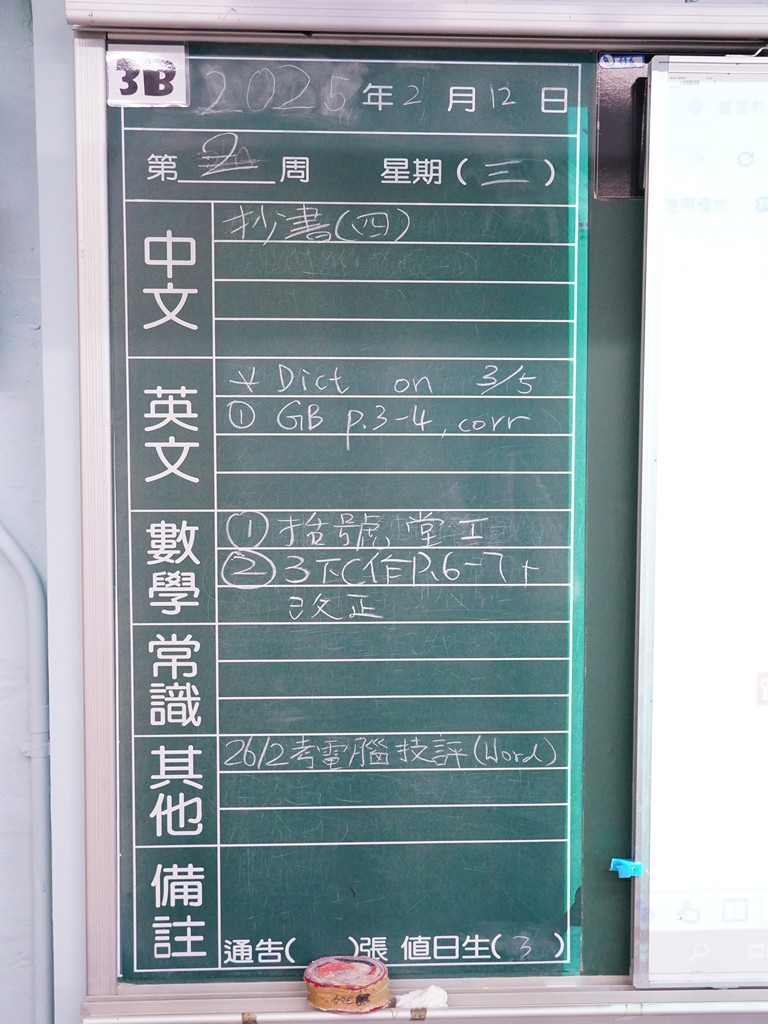 3B
2025年2月12日
第2周 星期(三)
中文
抄書(四)
英文
* Dict on 3/5
① GB p.3-4, corr
數學
① 括號 堂工
② 3下C作P.6-7+
改正
常識
其他
26/2考電腦技評(Word)
備註
通告( )張 值日生(3)